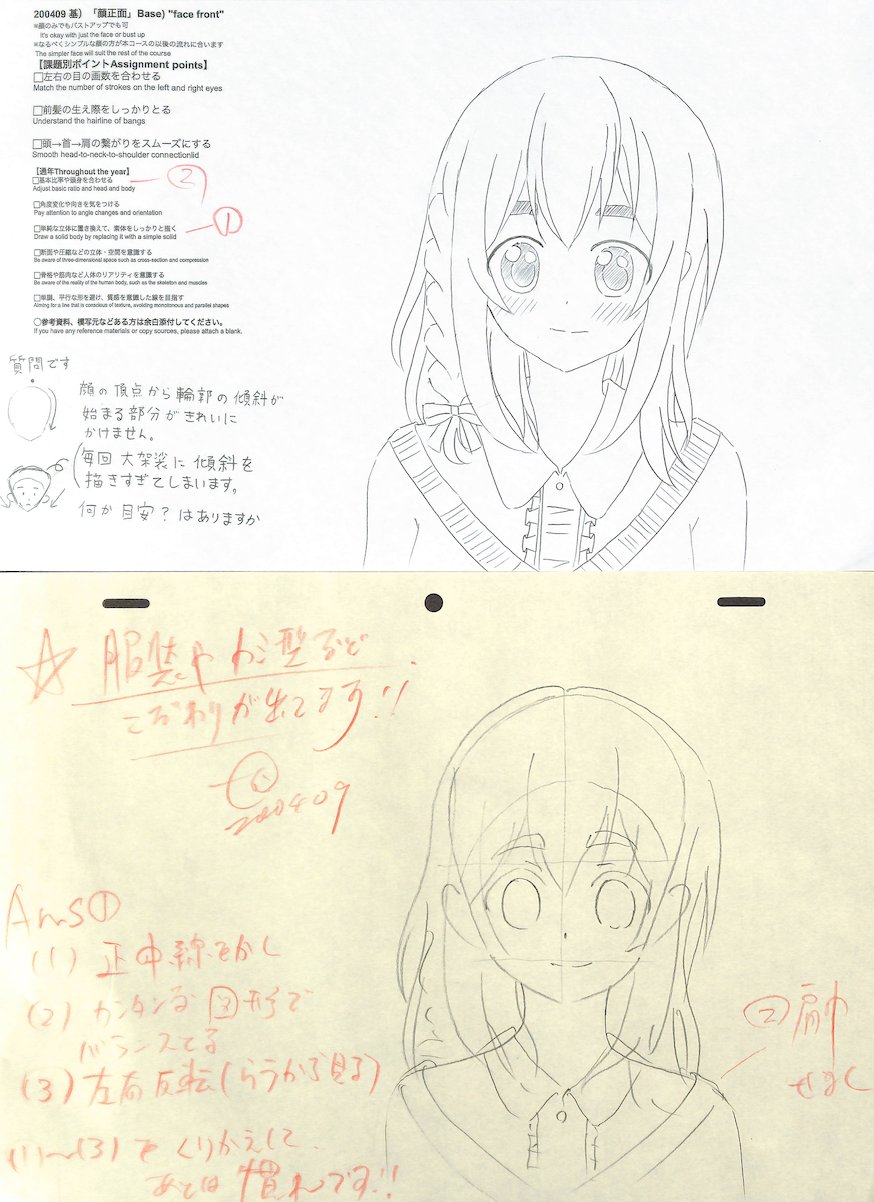 200409 基) 「顔正面」Base) "face front"
※顔のみでもバストアップでも可
It's okay with just the face or bust up
※なるべくシンプルな顔の方が本コースの以後の流れに合います
The simpler face will suit the rest of the course
【課題別ポイントAssignment points】
□左右の目の画数を合わせる
Match the number of strokes on the left and right eyes
□前髪の生え際をしっかりとる
Understand the hairline of bangs
□頭→首→肩の繋がりをスムーズにする
Smooth head-to-neck-to-shoulder connectionlid
【通年Throughout the year】
□基本比率や頭身を合わせる
Adjust basic ratio and head and body
②
□角度変化や向きを気をつける
Pay attention to angle changes and orientation
□単純な立体に置き換えて、素体をしっかりと描く
Draw a solid body by replacing it with a simple solid
①
□断面や圧縮などの立体・空間を意識する
Be aware of three-dimensional space such as cross-section and compression
□骨格や筋肉など人体のリアリティを意識する
Be aware of the reality of the human body, such as the skeleton and muscles
□単調、平行な形を避け、質感を意識した線を目指す
Aiming for a line that is conscious of texture, avoiding monotonous and parallel shapes
○参考資料、模写元などある方は余白添付してください。
If you have any reference materials or copy sources, please attach a blank.
質問です
顔の頂点から輪郭の傾斜が
始まる部分がきれいに
かけません。
毎回大袈裟に傾斜を
描きすぎてしまいます。
何か目安?はありますか
☆服装やカミ型など
こだわりが出てます!!
200409
Ans①
(1) 正中線をかし
(2) カンタンな図形で
バランスてる
(3) 左右反転(うらから見る)
(1)~(3)をくりかえして
あとは慣れです!!
②肩巾
せまく